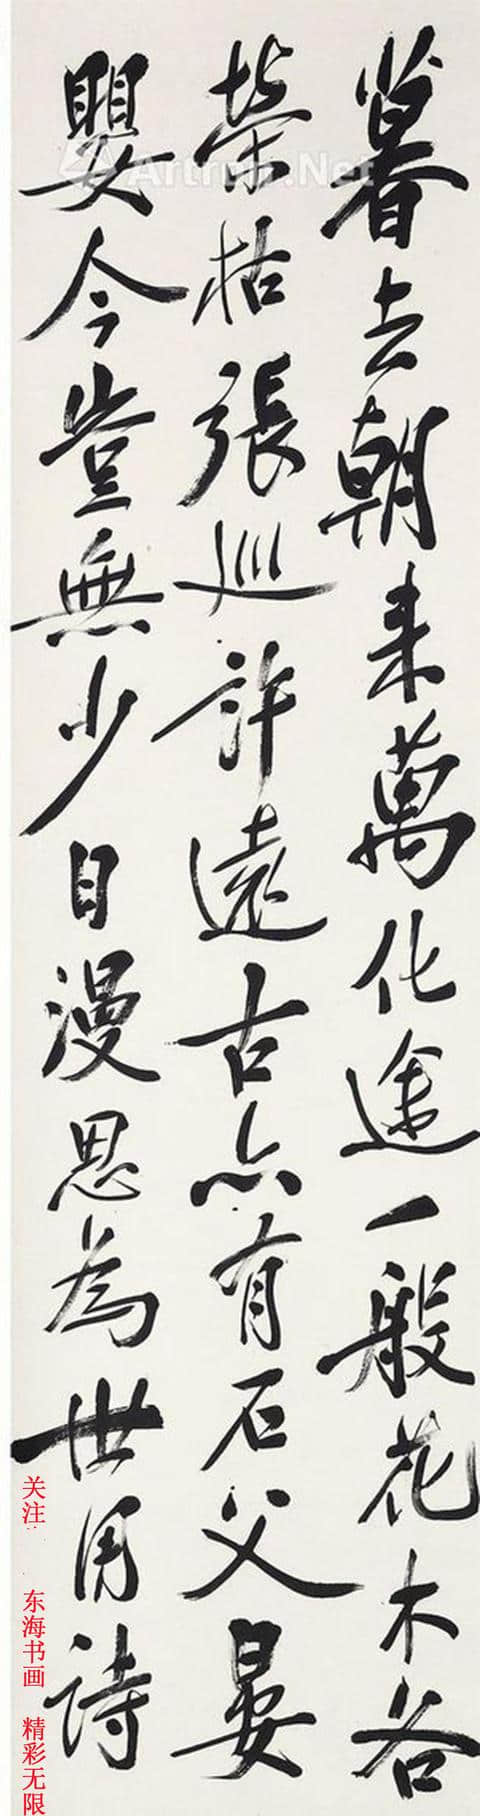 暮去朝来萬化途一般花木各
榮枯張巡許遠古亦有石父晏
嬰今豈無少日漫思為世用詩
Artron.Net
关注
东海书画
精彩无限